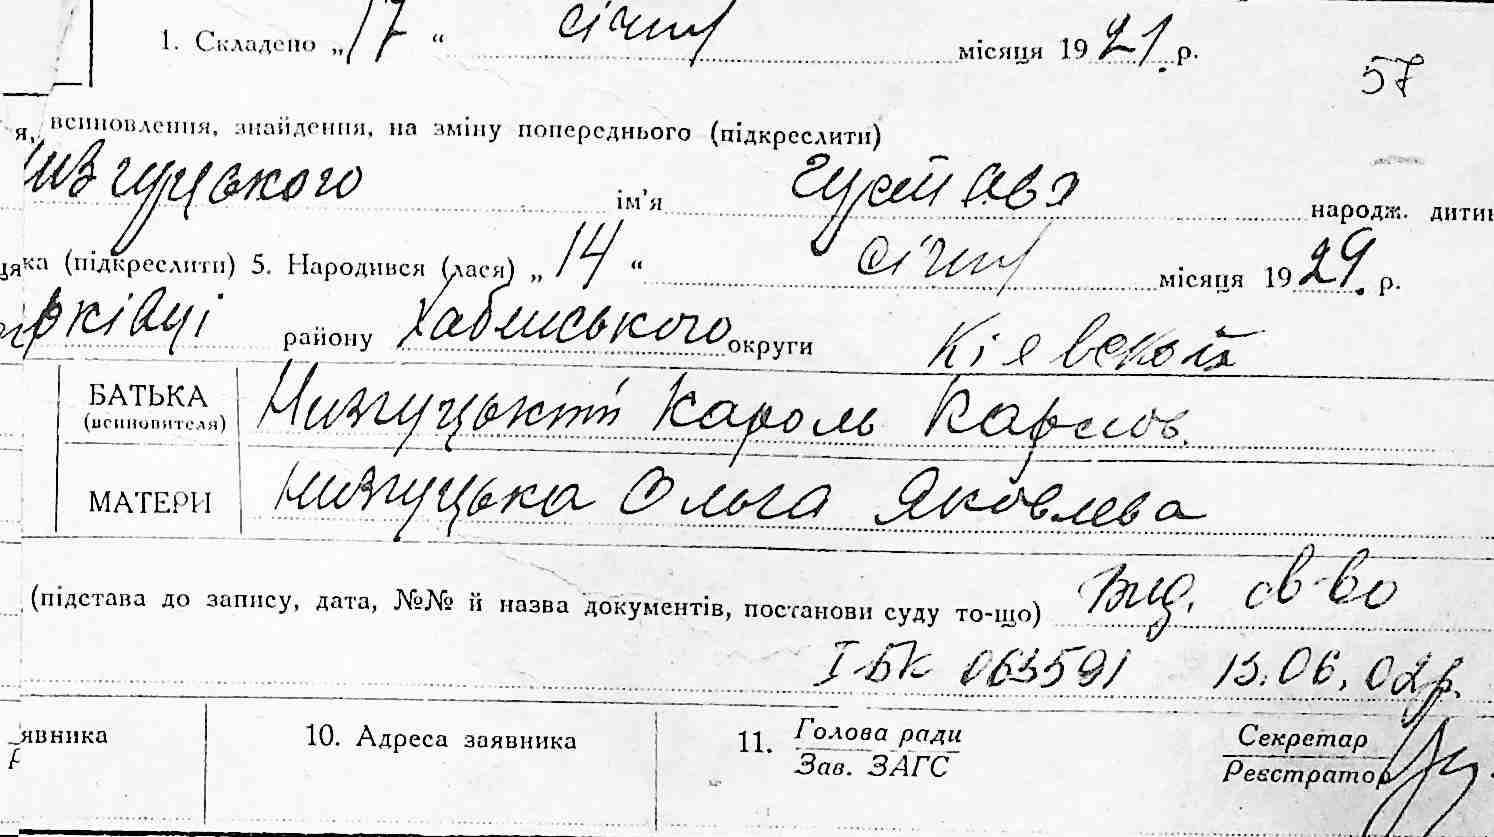 1. Складено „17“ січня місяця 1921. р.
57
я, всиновлення, знайдення, на зміну попереднього (підкреслити)
ім'я Густава народж. дитин
цяка (підкреслити) 5. Народився (лася) „14“ січня місяця 1929. р.
району Хабенського округи Кіевской
БАТЬКА Низгуцький Кароль Карлов.
(всиновителя)
МАТЕРИ Низгуцька Ольга Яковлева
(підстава до запису, дата, №№ й назва документів, постанови суду то-що) Вид. св-во
І-БК 063591 13.06.02р.
явника
10. Адреса заявника
11. Голова ради
Зав. ЗАГС
Секретар
Реєстратор